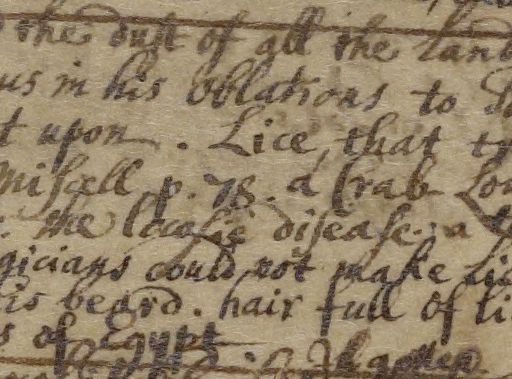 the dust of all the land
us in his oblations to
t upon. Lice, that
Miscell p. 78. a Crab Lou
: the lousie disease. a
gicians could not make Li
is beard. hair full of li
s of Egypt.